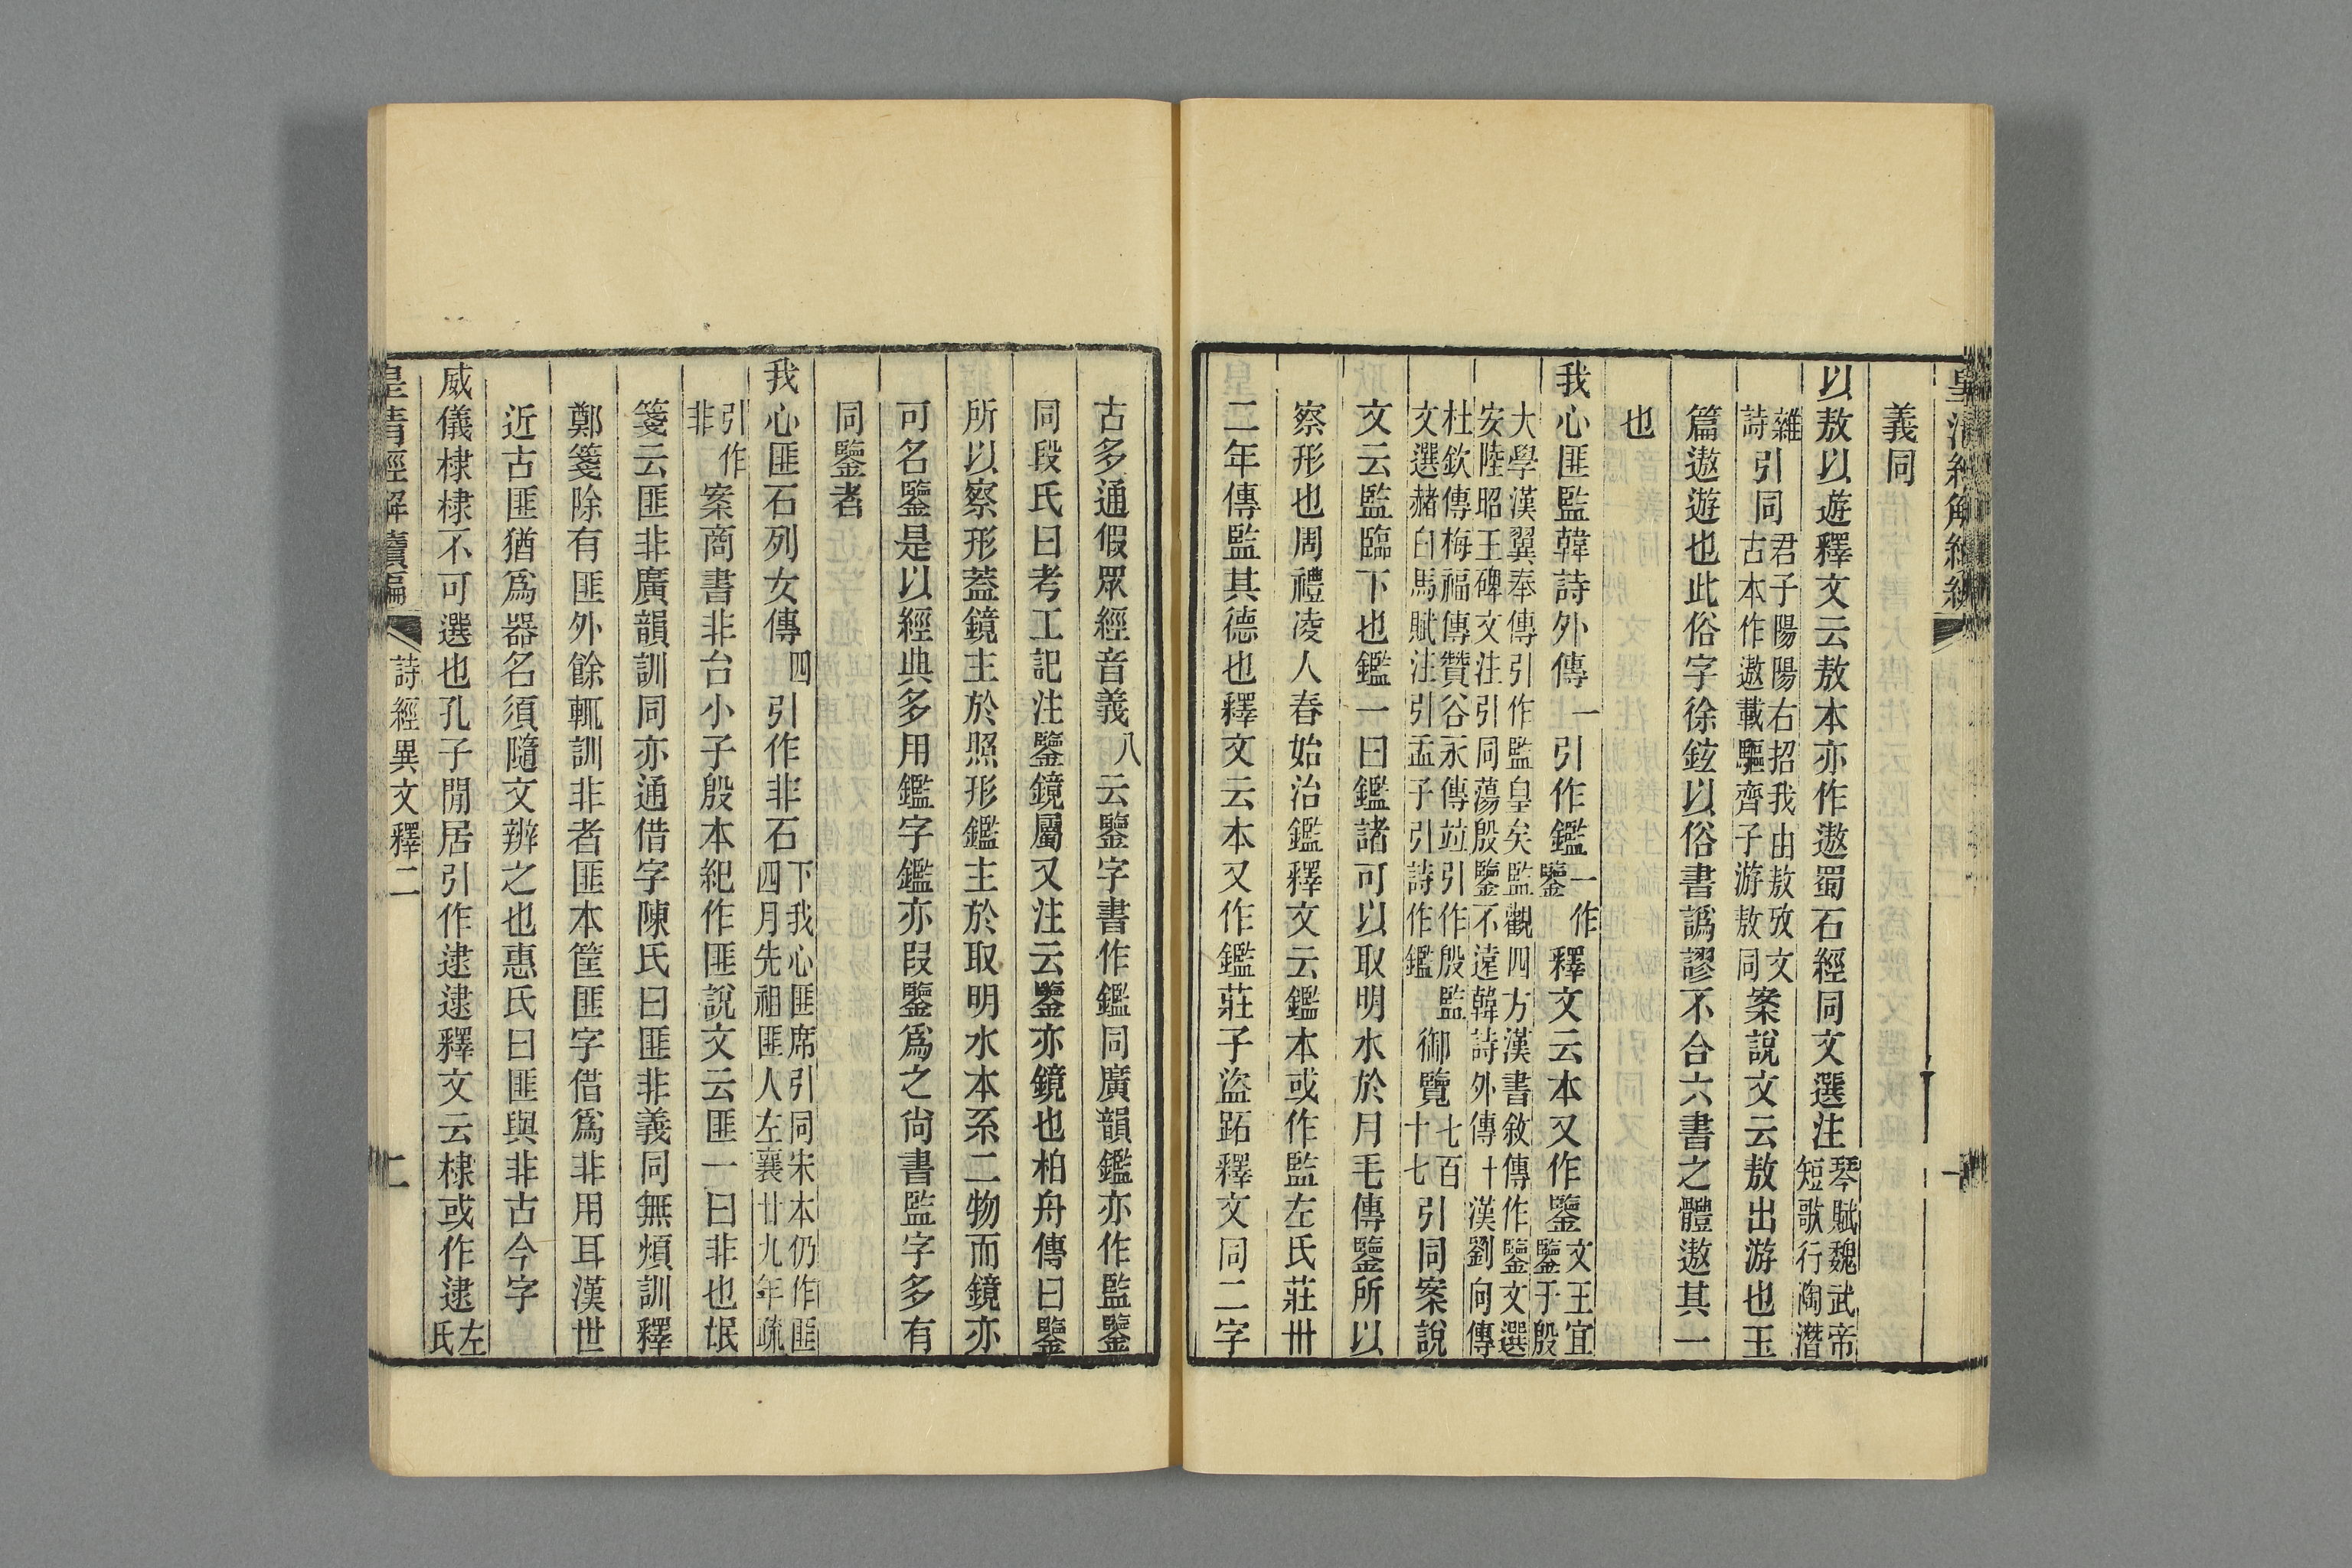 義同
以敖以遊釋文云敖本亦作遨蜀石經同文選注琴賦魏武帝短歌行陶潛
雜詩引同君子陽陽右招我由敖攷文古本作遨載驅齊子游敖同案說文云敖出游也玉
篇遨遊也此俗字徐鉉以俗書譌謬不合六書之體遨其一
也
我心匪監韓詩外傳一引作鑑一作鑒釋文云本又作鑒文王宜鑒于殷
大學漢翼奉傳引作監皇矣監觀四方漢書敘傳作鑒文選安陸昭王碑文注引同蕩殷鑒不遠韓詩外傳十漢劉向傳
杜欽傳梅福傳贊谷永傳竝引作殷監文選赭白馬賦注引孟子引詩作鑑御覽七百十七引同案說
文云監臨下也鑑一曰鑑諸可以取明水於月毛傳鑒所以
察形也周禮凌人春始治鑑釋文云鑑本或作監左氏莊卅
二年傳監其德也釋文云本又作鑑莊子盜跖釋文同二字
古多通假眾經音義八云鑒字書作鑑同廣韻鑑亦作監鑒
同段氏曰考工記注鑒鏡屬又注云鑒亦鏡也柏舟傳曰鑒
所以察形葢鏡主於照形鑑主於取明水本系二物而鏡亦
可名鑒是以經典多用鑑字鑑亦叚鑒爲之尙書監字多有
同鑒者
我心匪石列女傳四引作非石下我心匪席引同宋本仍作匪四月先祖匪人左襄廿九年疏
引作非案商書非台小子殷本紀作匪說文云匪一曰非也氓
箋云匪非廣韻訓同亦通借字陳氏曰匪非義同無煩訓釋
鄭箋除有匪外餘輒訓非者匪本筐匪字借爲非用耳漢世
近古匪猶爲器名須隨文辨之也惠氏曰匪與非古今字
威儀棣棣不可選也孔子閒居引作逮逮釋文云棣或作逮左氏
皇清經解續編
詩經異文釋二
二